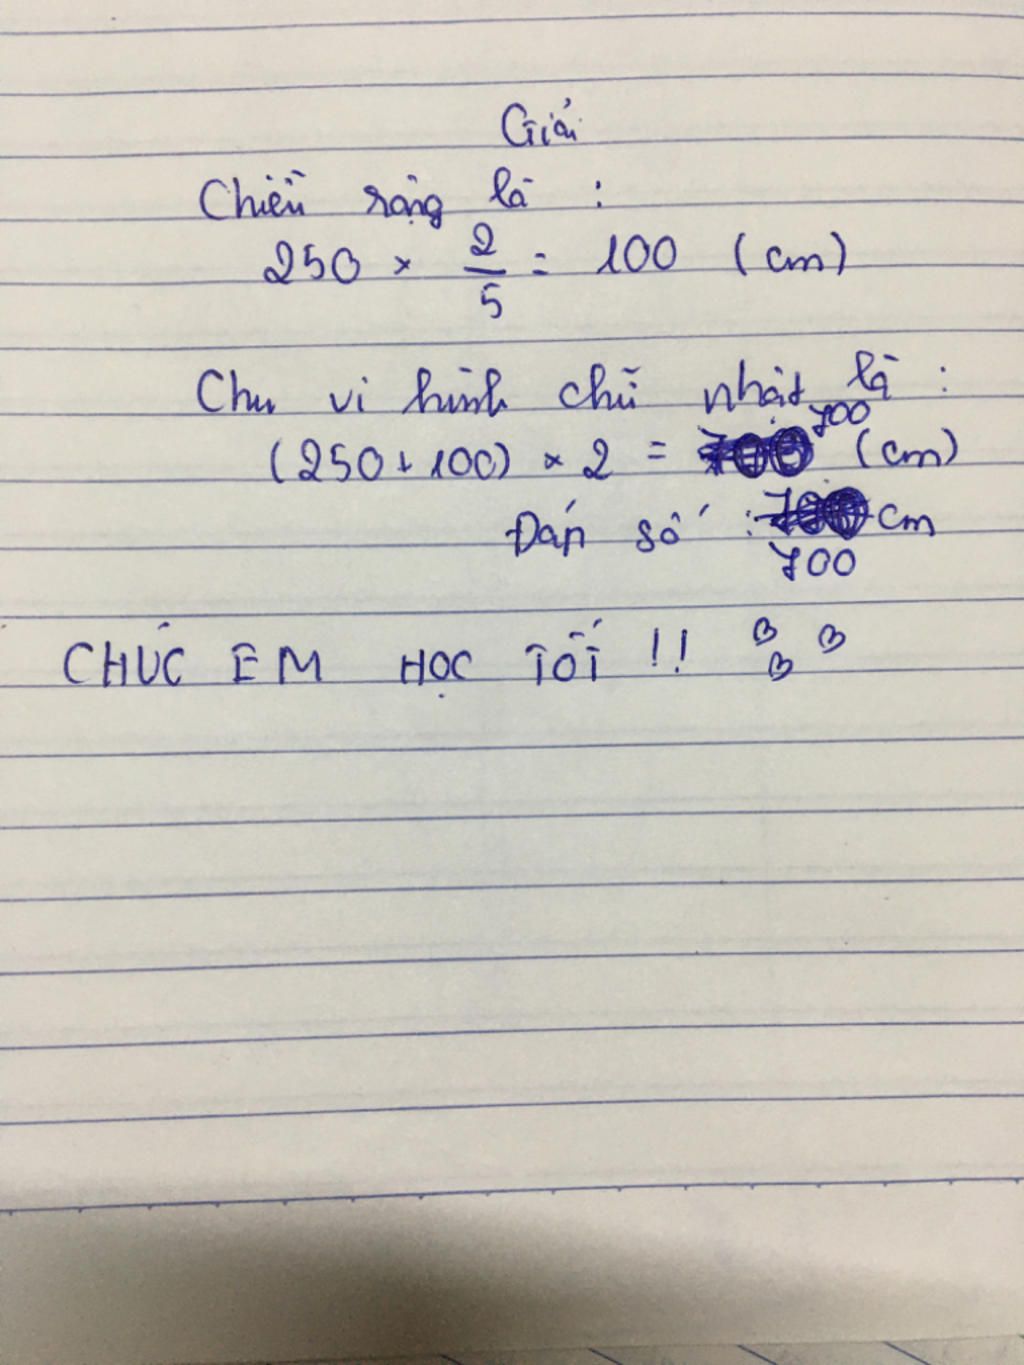 Giải
Chiều rộng là :
250 × 2/5 = 100 (cm)
Chu vi hình chữ nhật là :
(250 + 100) × 2 = 700 (cm)
Đáp số : 700 cm
CHÚC EM HỌC TỐT !!